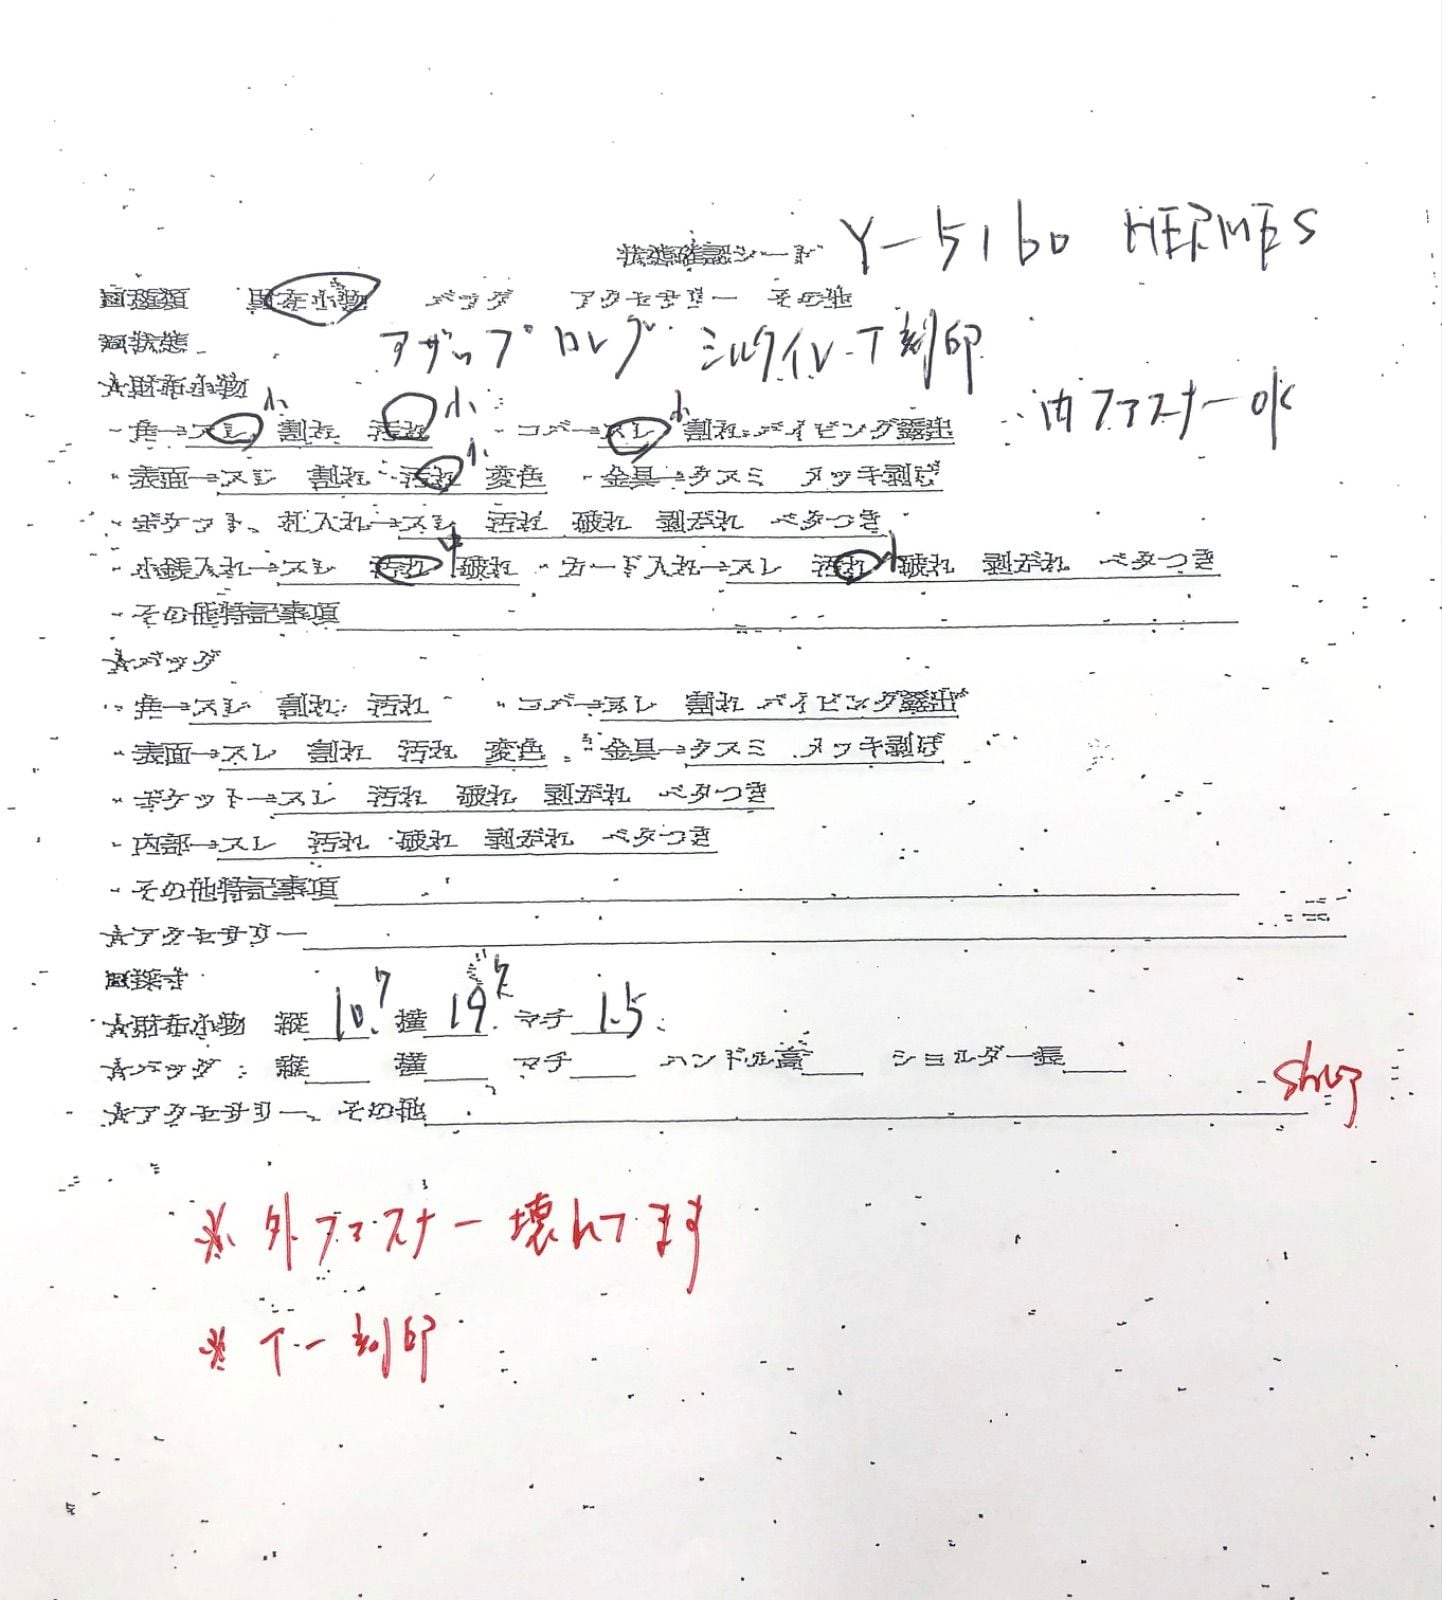 状態確認シード Y-5160 HERMES
回種類 財布小物 バッグ アクセサリー その他
回状態 アザップロング シルクイン T刻印
☆財布小物 内ファスナーOK
・角→スレ 小 割れ 汚れ 小 ・コバ→スレ 小 割れ パイピング露出
・表面→スレ 割れ 汚れ 小 変色 ・金具→クスミ メッキ剥げ
・ポケット、札入れ→スレ 汚れ 破れ 剥がれ ベタつき
・小銭入れ→スレ 汚れ 中 破れ ・カード入れ→スレ 汚れ 小 破れ 剥がれ ベタつき
・その他特記事項
☆バッグ
・角→スレ 割れ 汚れ ・コバ→スレ 割れ パイピング露出
・表面→スレ 割れ 汚れ 変色 ・金具→クスミ メッキ剥げ
・ポケット→スレ 汚れ 破れ 剥がれ ベタつき
・内部→スレ 汚れ 破れ 剥がれ ベタつき
・その他特記事項
☆アクセサリー
回採寸
☆財布小物 縦 10.7 横 19. マチ 1.5
☆バッグ 縦 横 マチ ハンドル高 ショルダー長
☆アクセサリー、その他
※外ファスナー壊れてます
※T-刻印